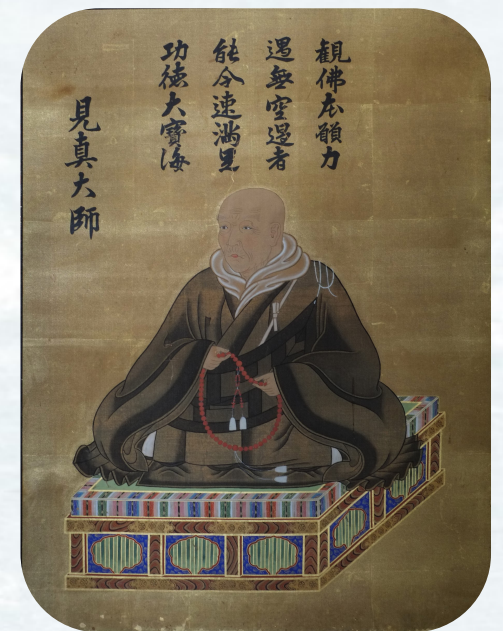 観佛本願力
遇無空過者
能令速満足
功徳大寶海
見真大師